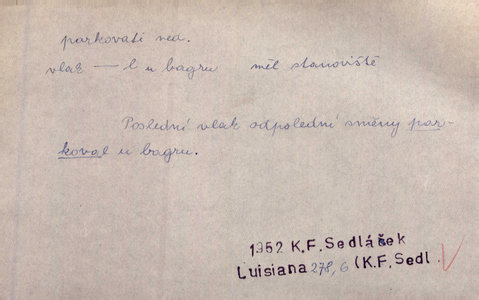 parkovati ned.
vlak — l u bagru měl stanoviště
Poslední vlak odpolední směny par-
koval u bagru.
1952 K.F.Sedláček
Luisiana 278,6 (K.F.Sedl.